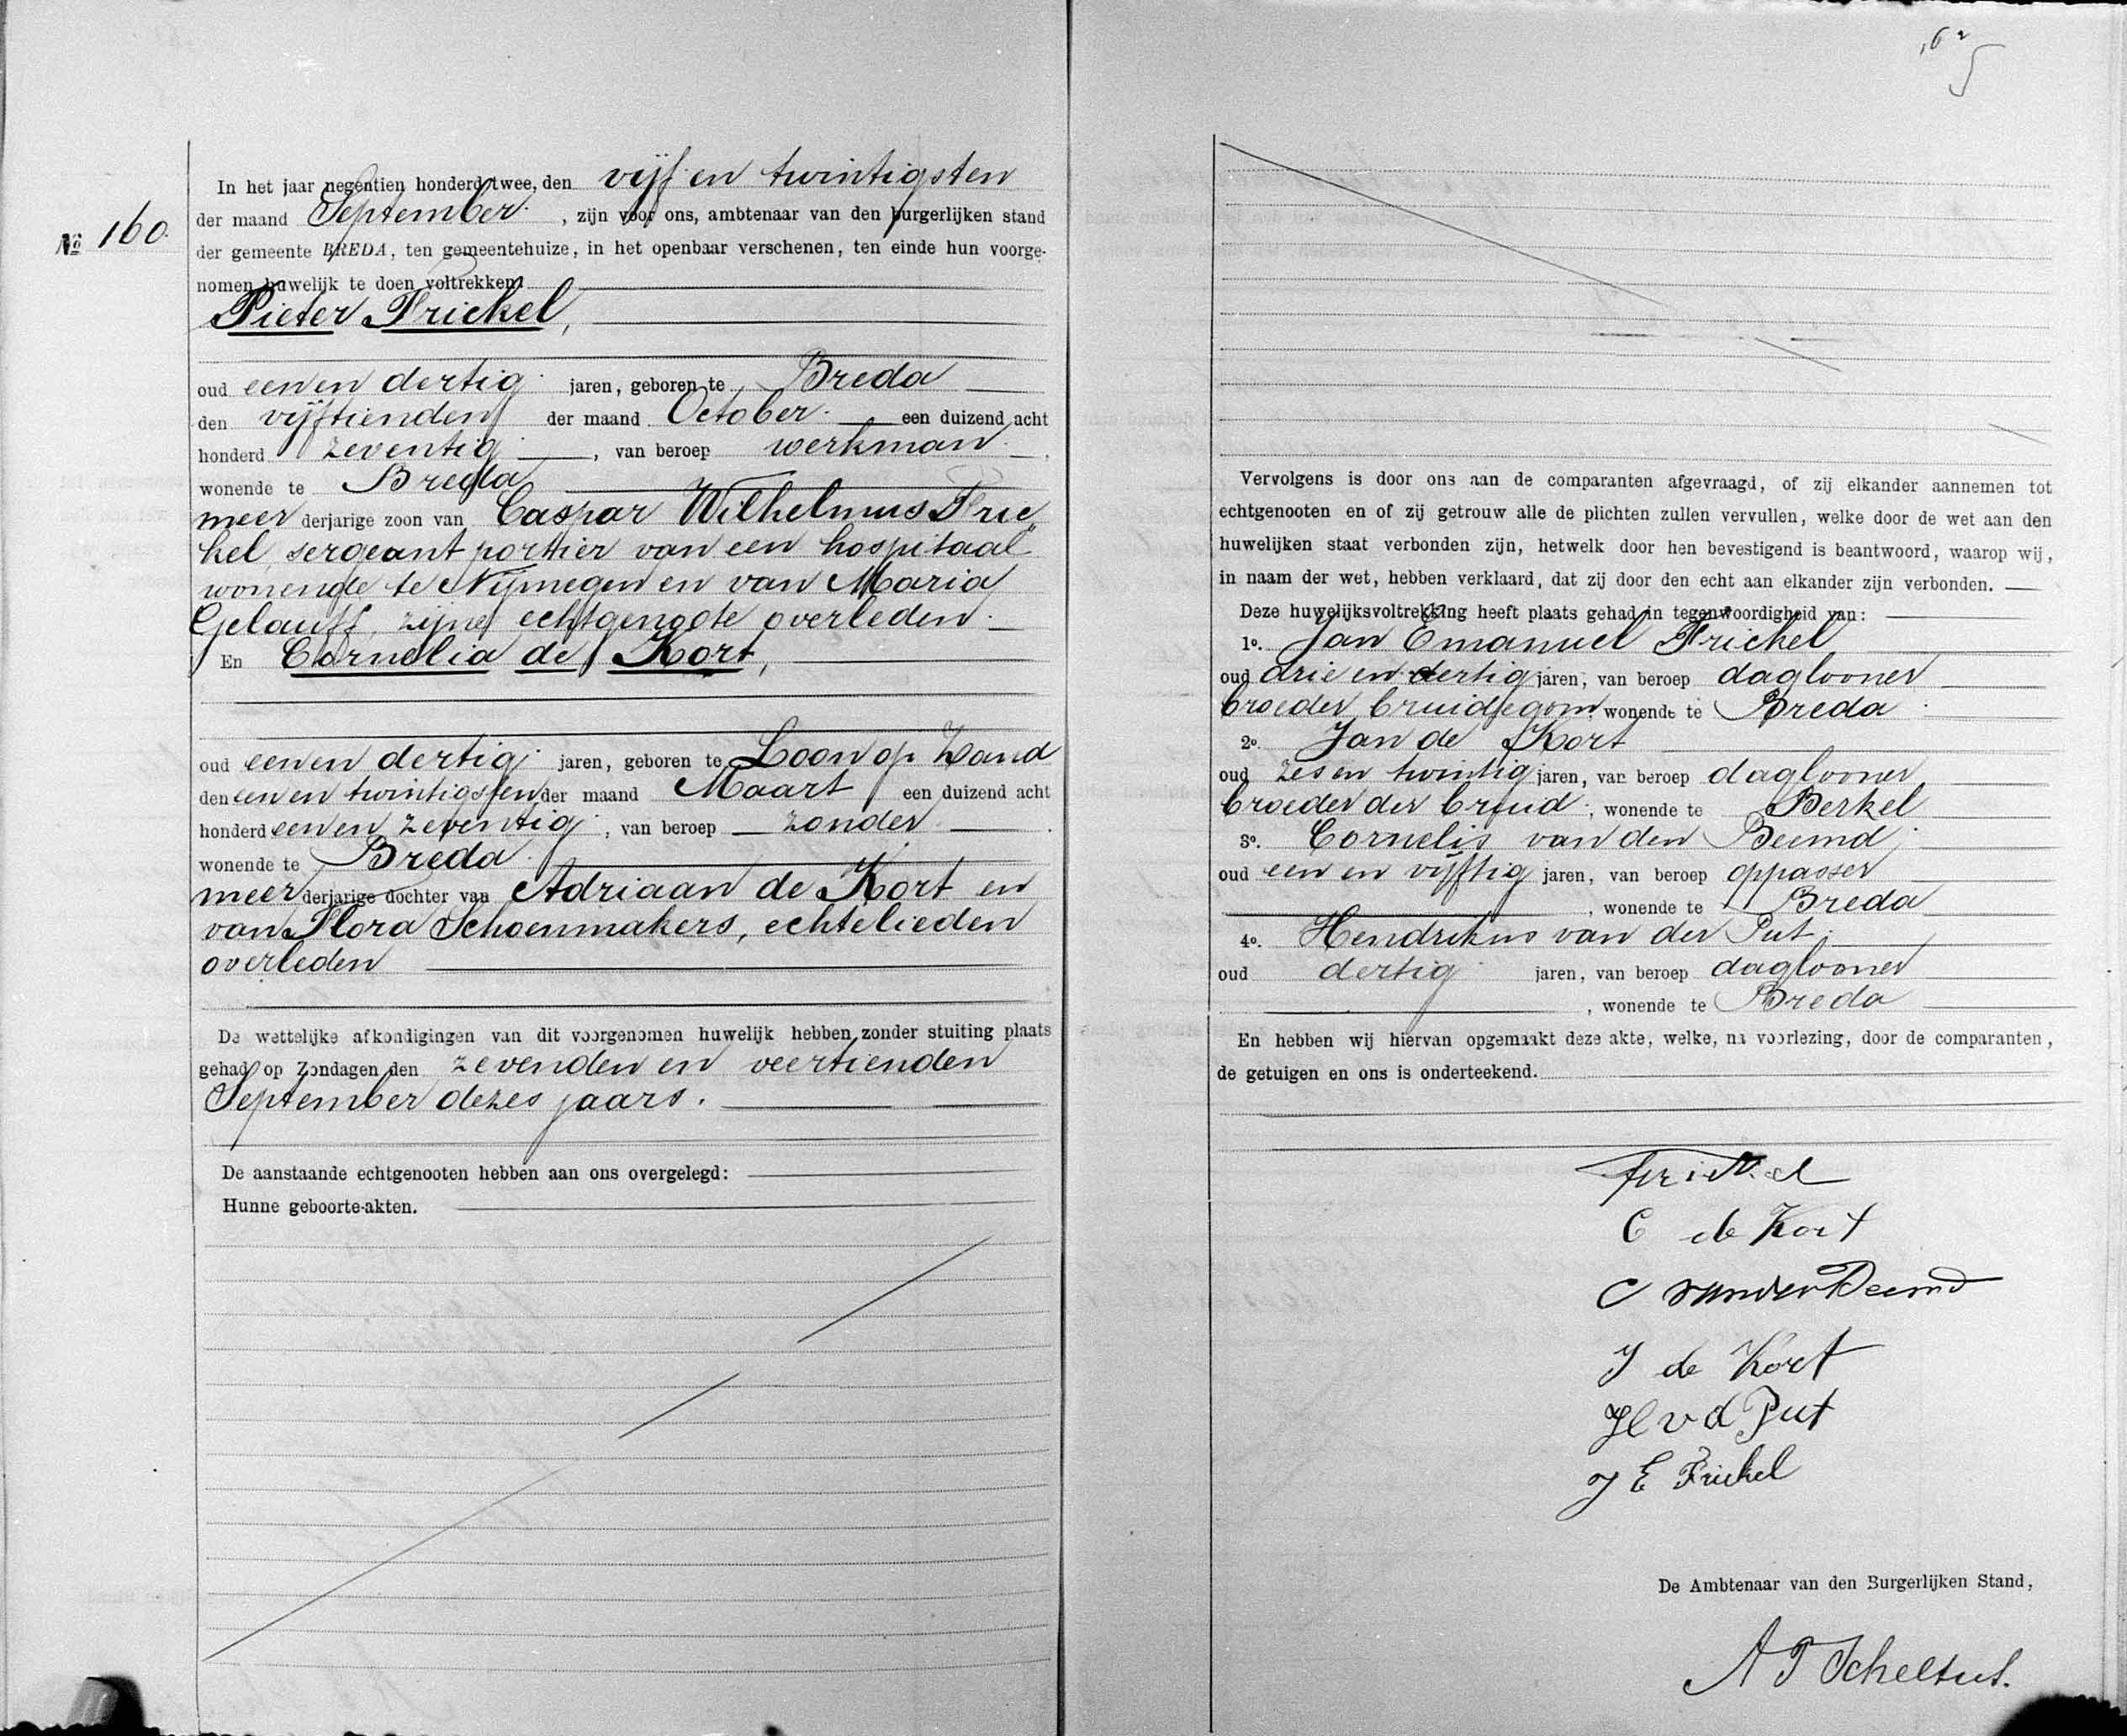 In het jaar negentien honderd twee, den vijf en twintigsten
der maand September, zijn voor ons, ambtenaar van den burgerlijken stand
№ 160.
der gemeente BREDA, ten gemeentehuize, in het openbaar verschenen, ten einde hun voorge-
nomen huwelijk te doen voltrekken:
Pieter Frickel,
oud een en dertig jaren, geboren te Breda
den vijftienden der maand October een duizend acht
honderd zeventig, van beroep werkman
wonende te Breda
meerderjarige zoon van Caspar Wilhelmus Fric„
kel, sergeant portier van een hospitaal
wonende te Nijmegen en van Maria
Gelauff, zijne echtgenoote overleden.
En Cornelia de Kort,
oud een en dertig jaren, geboren te Loon op Zand
den een en twintigsten der maand Maart een duizend acht
honderd een en zeventig, van beroep zonder
wonende te Breda
meerderjarige dochter van Adriaan de Kort en
van Flora Schoenmakers, echtelieden
overleden
De wettelijke afkondigingen van dit voorgenomen huwelijk hebben zonder stuiting plaats
gehad op Zondagen den zevenden en veertienden
September dezes jaars.
De aanstaande echtgenooten hebben aan ons overgelegd:
Hunne geboorte-akten.
Vervolgens is door ons aan de comparanten afgevraagd, of zij elkander aannemen tot
echtgenooten en of zij getrouw alle de plichten zullen vervullen, welke door de wet aan den
huwelijken staat verbonden zijn, hetwelk door hen bevestigend is beantwoord, waarop wij,
in naam der wet, hebben verklaard, dat zij door den echt aan elkander zijn verbonden.
Deze huwelijksvoltrekking heeft plaats gehad in tegenwoordigheid van:
1o. Jan Emanuel Frickel
oud drie en dertig jaren, van beroep daglooner
broeder bruidegom, wonende te Breda
2o. Jan de Kort
oud zes en twintig jaren, van beroep daglooner
broeder der bruid, wonende te Berkel
3o. Cornelis van den Beemd
oud een en vijftig jaren, van beroep oppasser
, wonende te Breda
4o. Hendrikus van der Put
oud dertig jaren, van beroep daglooner
, wonende te Breda
En hebben wij hiervan opgemaakt deze akte, welke, na voorlezing, door de comparanten,
de getuigen en ons is onderteekend.
Frickel
C de Kort
C van den Beemd
J de Kort
H v d Put
J E Frickel
De Ambtenaar van den Burgerlijken Stand,